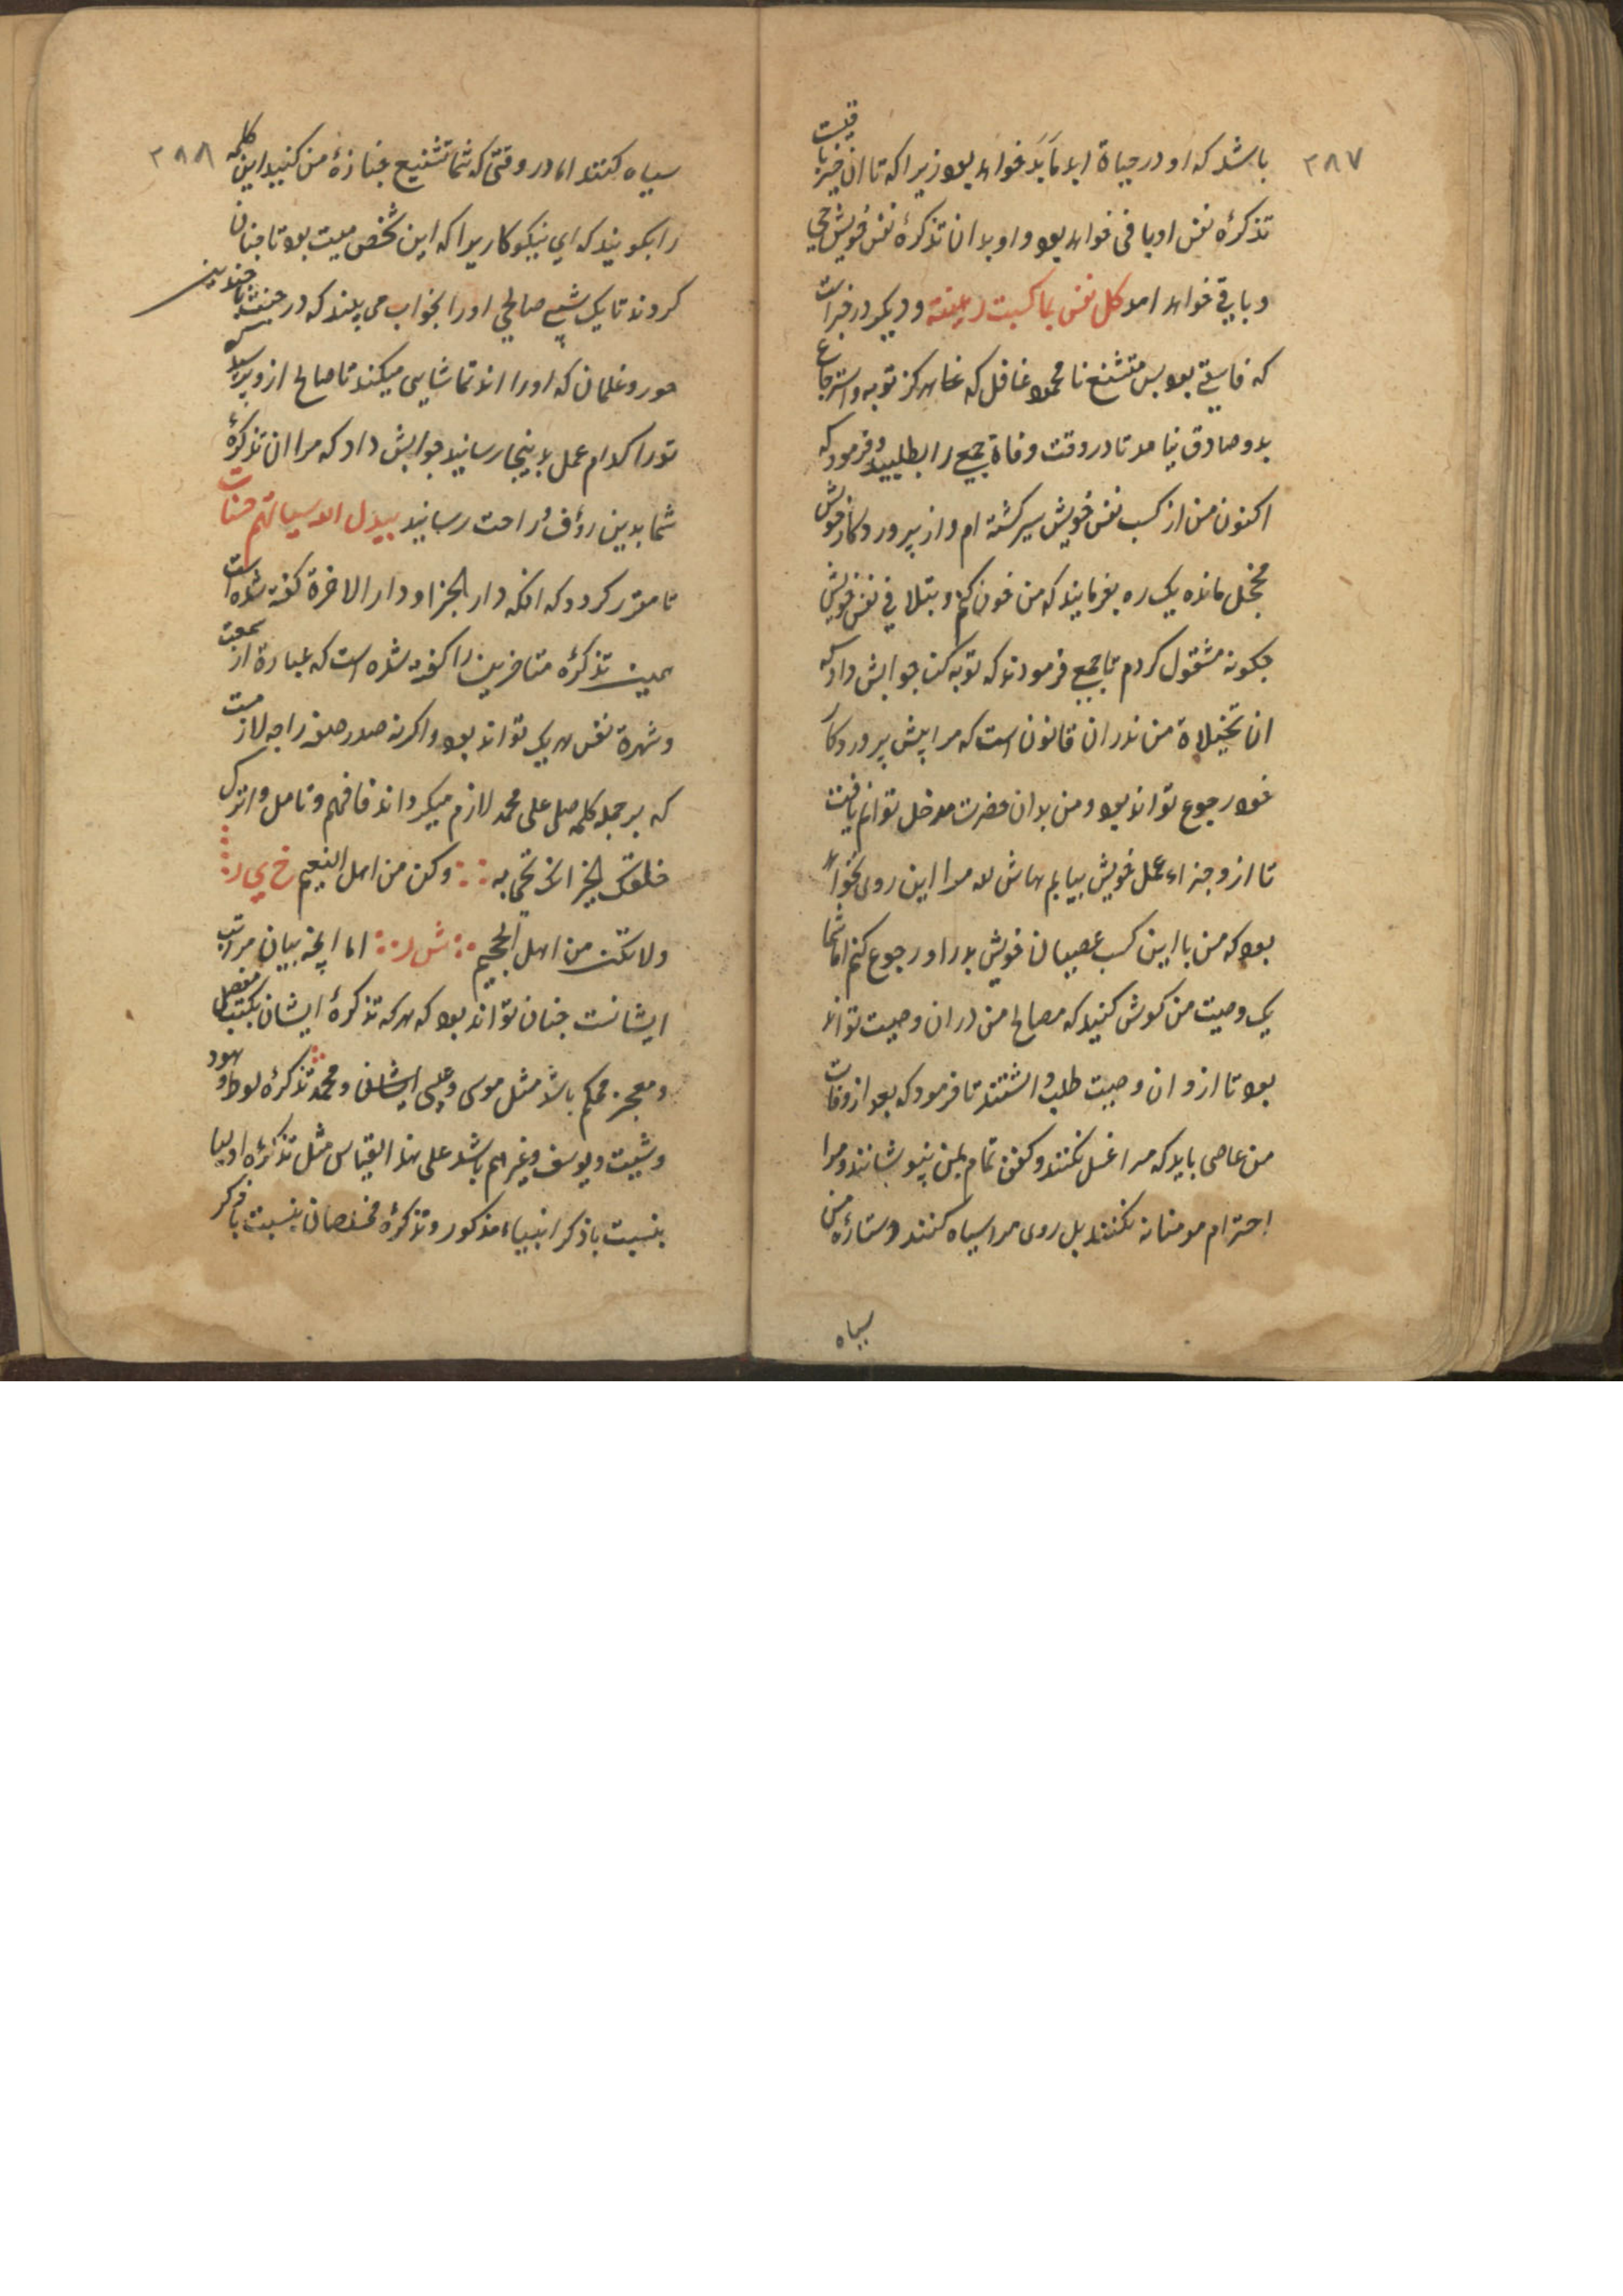 ۳۸۷
باشد که او در حیاة ابد مآبد خواهد بود زیرا که تا ان خیر باقیست
تذکرهٔ نفس او باقی خواهد بود و او بدان تذکرهٔ نفس خویش حی
و باقی خواهد امد کل نفس بما کسبت رهینة و دیکر در خبر است
که فاسقی بود بس متشنع نا محمود غافل که هرکز توبه و استرجاع
بدو صادق نیامد تا در وقت وفاة جمعی را بطلبید و فرمود که
اکنون من از کسب نفس خویش سیر کشته ام و از پروردکار خویش
مخجل مانده یک ره بفرمایند که من خون کنم و بتلافی نفس خویش
چکونه مشغول کردم تا جمع فرمودند که توبه کن جوابش داد که
ان تخیلاة من نه در ان قانون است که مرا پیش پروردکار
خود رجوع تواند بود و من بدان حضرت مدخل توانم یافت
تا ازو جزاء عمل خویش بیابم حاش لله مرا این روی نخواهد
بود که من با این کسب عصیان خویش بدو رجوع کنم اما شما
یک وصیت من کوش کنید که مصالح من در ان وصیت تواند
بود تا ازو ان وصیت طلب داشتند تا فرمود که بعد از وفات
من عاصی باید که مرا غسل نکنند و کفن تمام بمن نپوشانند و مرا
احترام مومنانه نکنند بل روی مرا سیاه کنند و ستارهٔ من
سیاه
۳۸۸
سیاه کنند اما در وقتی که شما تشنیع جنازهٔ من کنید این کلمه
را بکویند که ای نیکوکار یرا که این شخص میت بود تا چنان
کردند تا یک شبی صالحی اورا بخواب می بیند که در جنت با چندین
حور و غلمان که اورا اند تماشایی میکند تا صالح ازو پرسید که
تورا کدام عمل بدینجا رسانید جوابش داد که مرا ان تذکرهٔ
شما بدین رؤف و راحت رسانید یبدل الله سیاتهم حسنات
تا مقرر کردد که انکه دار الجزا و دار الاخرة کفته شده است
همین تذکرهٔ متاخرین را کفته شده است که عبارة از سمعت
و شهرة نفس هریک تواند بود و اکرنه صدر صفه را چه لازمست
که بر جمله کلمه صل علی محمد لازم میکرداند فافهم و تامل و اترک
خلقک الخیر انک تحیی به ∴ وکن من اهل النعیم خ ی ر
ولا تکن من اهل الجحیم ∴ ش ر ∴ اما انچه بیان مراتب
ایشانست چنان تواند بود که هرکه تذکرهٔ ایشان بکتب مفصل
و معجز محکم باشد مثل موسی و عیسی و محمد تذکرهٔ لوط و هود
و شیث و یوسف و غیرهم باشد علی هذا القیاس مثل تذکرهٔ اولیا
بنسبت با ذکر انبیاء مذکور و تذکرهٔ مخلصان بنسبت با ذکر